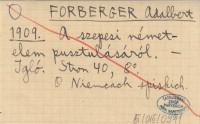 FORBERGER Adalbert
1909. A szepesi német-
elem pusztulásáról. –
Igló. Stron 40, 8°.
O Niemcach spiskich.